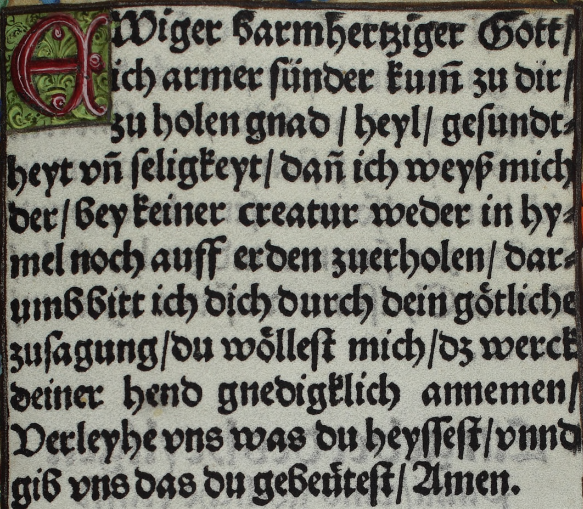 EWiger barmhertziger Gott/
ich armer sünder kum̃ zu dir/
zu holen gnad / heyl/ gesundt⸗
heyt vñ seligkeyt/ dañ ich weyß mich
der/ bey keiner creatur weder in hy⸗
mel noch auff erden zuerholen/ dar⸗
umb bitt ich dich durch dein götliche
zusagung/du wöllest mich/dz werck
deiner hend gnedigklich annemen/
Verleyhe vns was du heyssest/vnnd
gib vns das du gebeütest/ Amen.